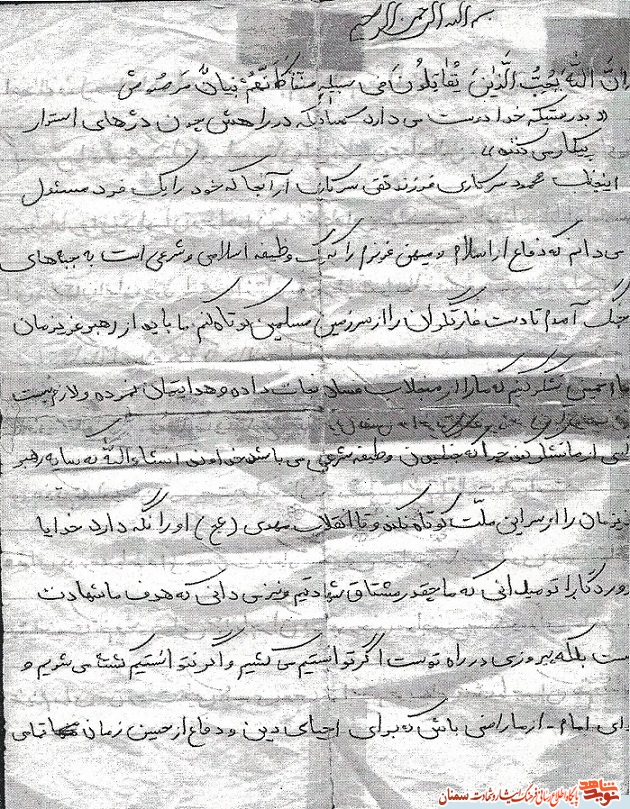 بسم الله الرحمن الرحیم
انَّ اللهَ یُحبُّ الَّذینَ یُقاتِلُونَ فی سبیلِهِ صَفّاً کَاَنَّهُمْ بُنیانٌ مَرصُوصٌ
« بدرستیکه خدا دوست می دارد کسانیکه در راهش چون دژهای استوار
پیکار می کنند »
اینجانب محمود سرکاری فرزند تقی سرکاری از آنجا که خود را یک فرد مسئول
می دانم که دفاع از اسلام و میهن عزیزم را که یک وظیفه اسلامی و شرعی است به جبهه های
جنگ آمدم تا دست غارتگران را از سرزمین مسلمین کوتاه کنم ما باید از رهبر عزیزمان
امام خمینی تشکر کنیم که ما را از منجلاب فساد نجات داده و هدایتمان نموده و لازم نیست
از ما تشکر کند چرا که جنگیدن وظیفه شرعی می باشد خداوند انشاءالله که سایه رهبر
عزیزمان را از سر این ملّت کوتاه نکند و تا انقلاب مهدی (عج) او را نگه دارد خدایا
پروردگارا تو میدانی که ما چقدر مشتاق شهادتیم و نیز می دانی که هدف ما شهادت
نیست بلکه پیروزی در راه توست اگر توانستیم می کشیم و اگر نتوانستیم کشته می شویم و
ای امام - از ما راضی باش که برای احیای دین و دفاع از حسین زمان تمامی
نوید شاهد
پایگاه اطلاع رسانی فرهنگ ایثار و شهادت سمنان